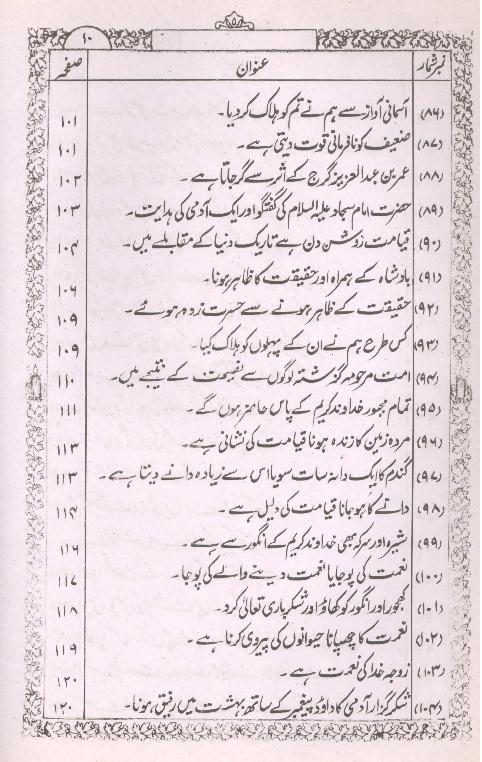 ۵۸
۱۰
نمبر شمار عنوان صفحہ
(۸۶) آسمانی آواز سے ہم نے تم کو ہلاک کر دیا۔ ۱۰۱
(۸۷) ضعیف کو نافرمانی قوت دیتی ہے۔ ۱۰۱
(۸۸) عمر بن عبدالعزیز گرج کے اثر سے گر جاتا ہے۔ ۱۰۲
(۸۹) حضرت امام سجاد علیہ السلام کی گفتگو اور ایک آدمی کی ہدایت۔ ۱۰۳
(۹۰) قیامت روشن دن ہے تاریک دنیا کے مقابلے میں۔ ۱۰۴
(۹۱) بادشاہ کے ہمراہ اور حقیقت کا ظاہر ہونا۔ ۱۰۶
(۹۲) حقیقت کے ظاہر ہونے سے حسرت زدہ ہوئے۔ ۱۰۹
(۹۳) کس طرح ہم نے ان کے پہلوں کو ہلاک کیا۔ ۱۰۹
(۹۴) امت مرحومہ گزشتہ لوگوں سے نصیحت کے نتیجے میں۔ ۱۱۰
(۹۵) تمام مجبور خداوند کریم کے پاس حاضر ہوں گے۔ ۱۱۱
(۹۶) مردہ زمین کا زندہ ہونا قیامت کی نشانی ہے۔ ۱۱۳
(۹۷) گندم کا ایک دانہ سات سو یا اس سے زیادہ دانے دیتا ہے۔ ۱۱۳
(۹۸) دانے کا ہو جانا قیامت کی دلیل ہے۔ ۱۱۴
(۹۹) شیرہ اور سرکہ بھی خداوند کریم کے انگور سے ہے۔ ۱۱۶
(۱۰۰) نعمت کی پوجا یا نعمت دینے والے کی پوجا۔ ۱۱۷
(۱۰۱) کھجور اور انگور کو کھاؤ اور شکر باری تعالیٰ کرو۔ ۱۱۸
(۱۰۲) نعمت کا چھپانا حیوانوں کی پیروی کرنا ہے۔ ۱۱۹
(۱۰۳) زوجہ خدا کی نعمت ہے۔ ۱۲۰
(۱۰۴) شکر گزار آدمی کا داؤد پیغمبر کے ساتھ بہشت میں رفیق ہونا۔ ۱۲۰